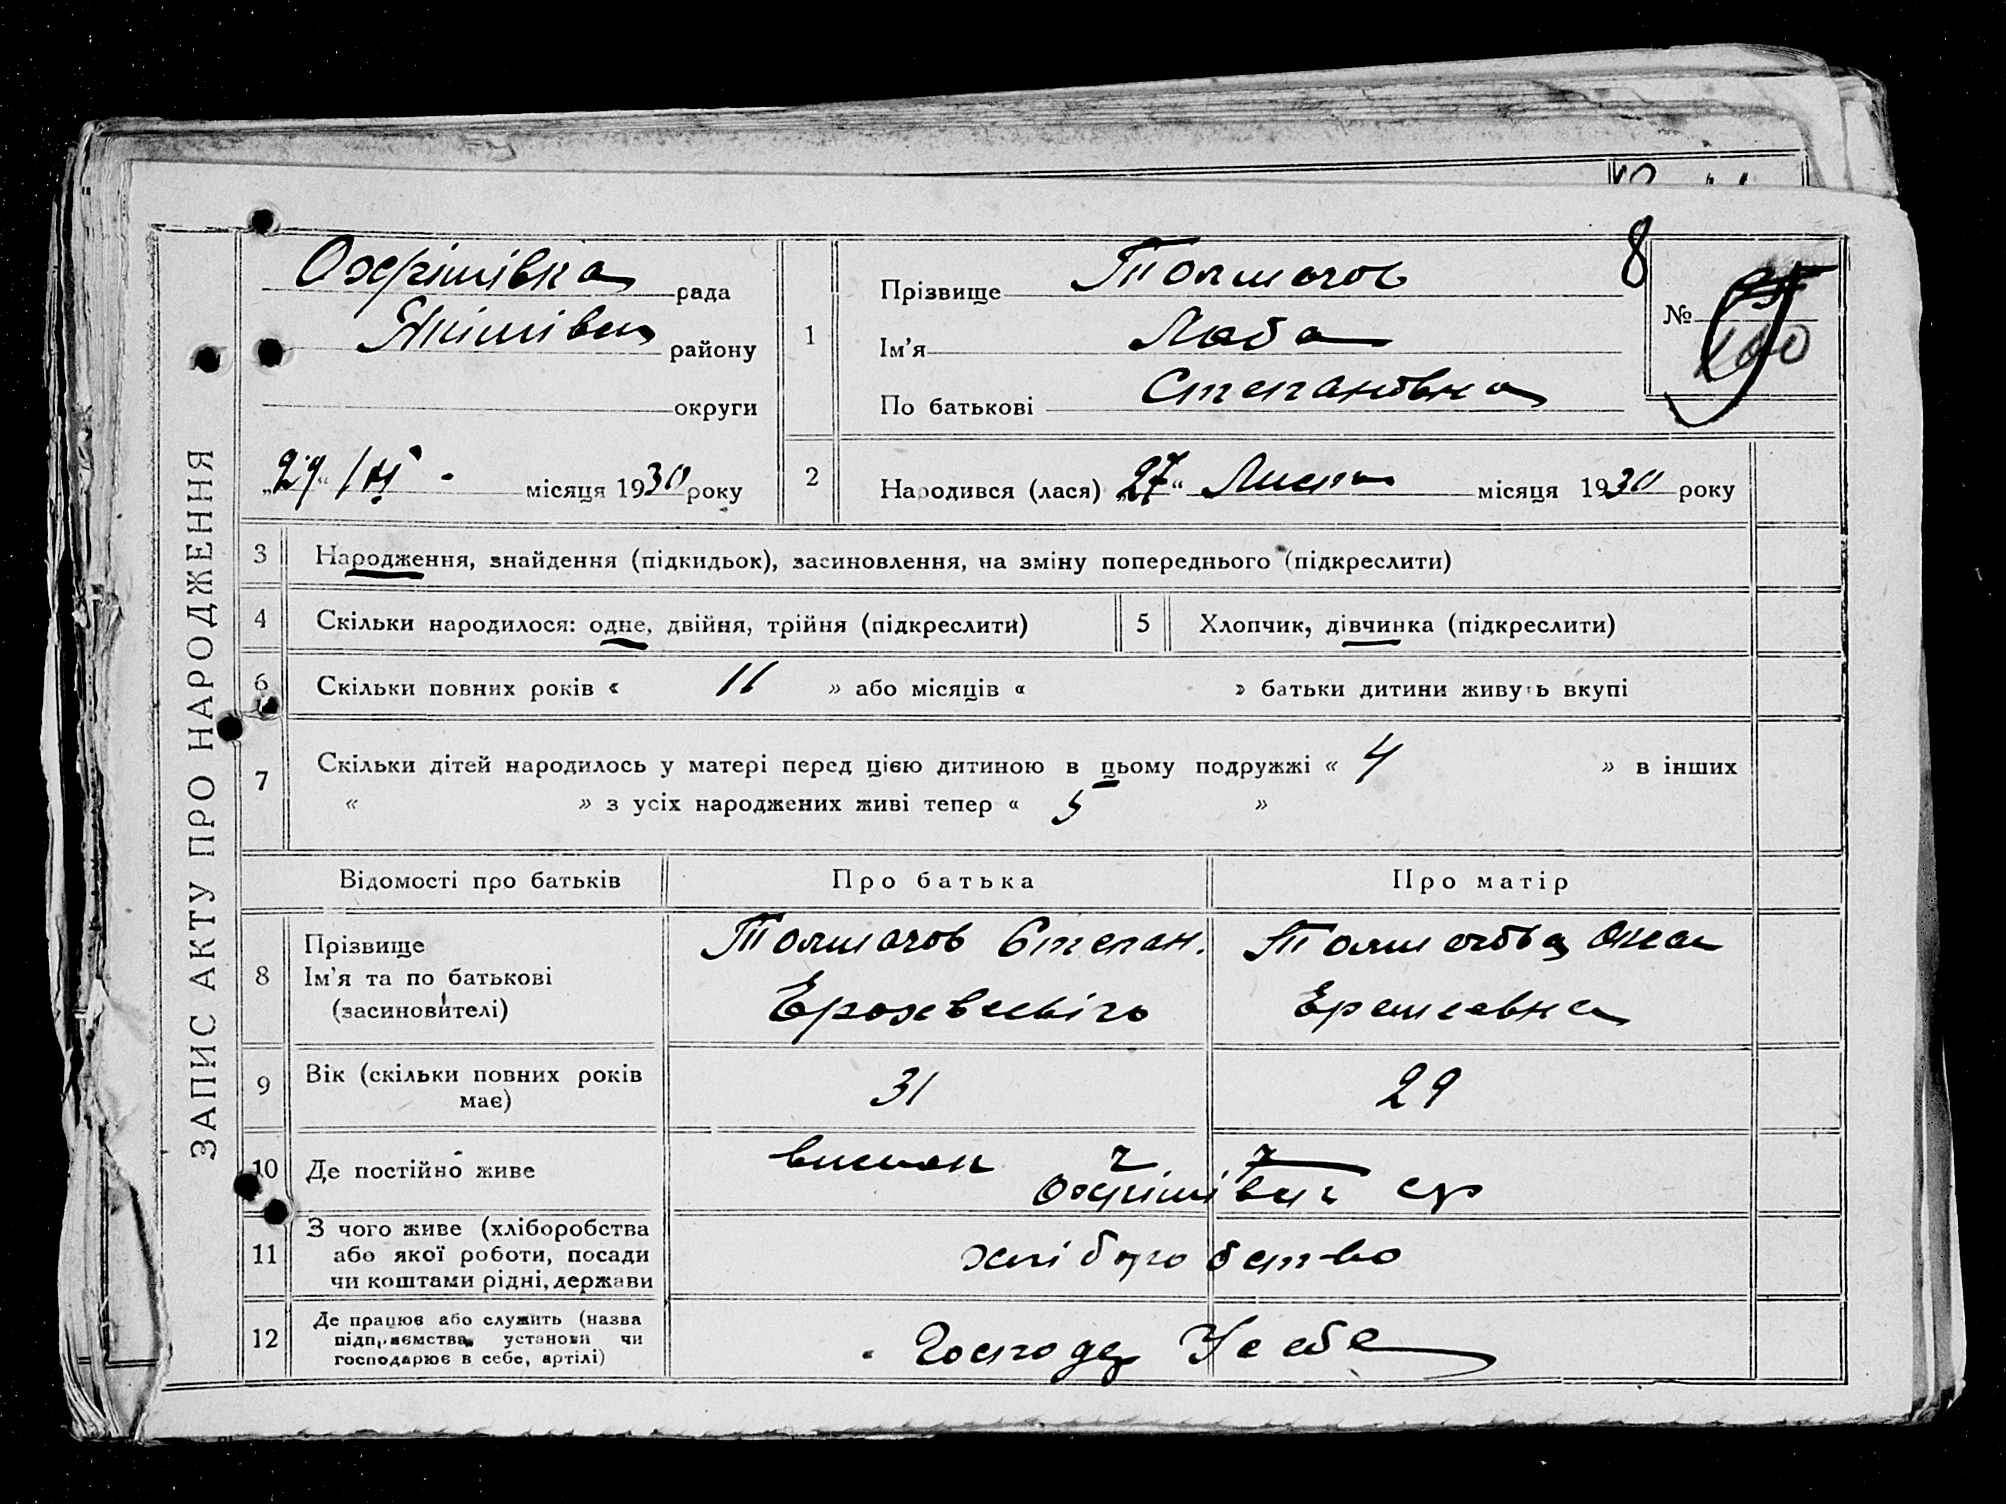 ЗАПИС АКТУ ПРО НАРОДЖЕННЯ
Охрімівка рада
району
округи
„29“ місяця 1930 року
1
Прізвище Толмачов
8
№ 100
Ім'я Люба
По батькові Степановна
2
Народився (лася) „27“ місяця 1930 року
3 Народження, знайдення (підкидьок), засиновлення, на зміну попереднього (підкреслити)
4 Скільки народилося: одне, двійня, трійня (підкреслити)
5 Хлопчик, дівчинка (підкреслити)
6 Скільки повних років « 11 » або місяців « » батьки дитини живуть вкупі
7 Скільки дітей народилось у матері перед цією дитиною в цьому подружжі « 4 » в інших
« » з усіх народжених живі тепер « 5 »
Відомості про батьків Про батька Про матір
8 Прізвище
Ім'я та по батькові
(засиновителі)
Толмачов Степан.
Толмачова
9 Вік (скільки повних років має) 31 29
10 Де постійно живе
11 З чого живе (хліборобства
або якої роботи, посади
чи коштами рідні, держави
хліборобство
12 Де працює або служить (назва
підприємства, установи чи
господарює в себе, артілі)
Господар У себе